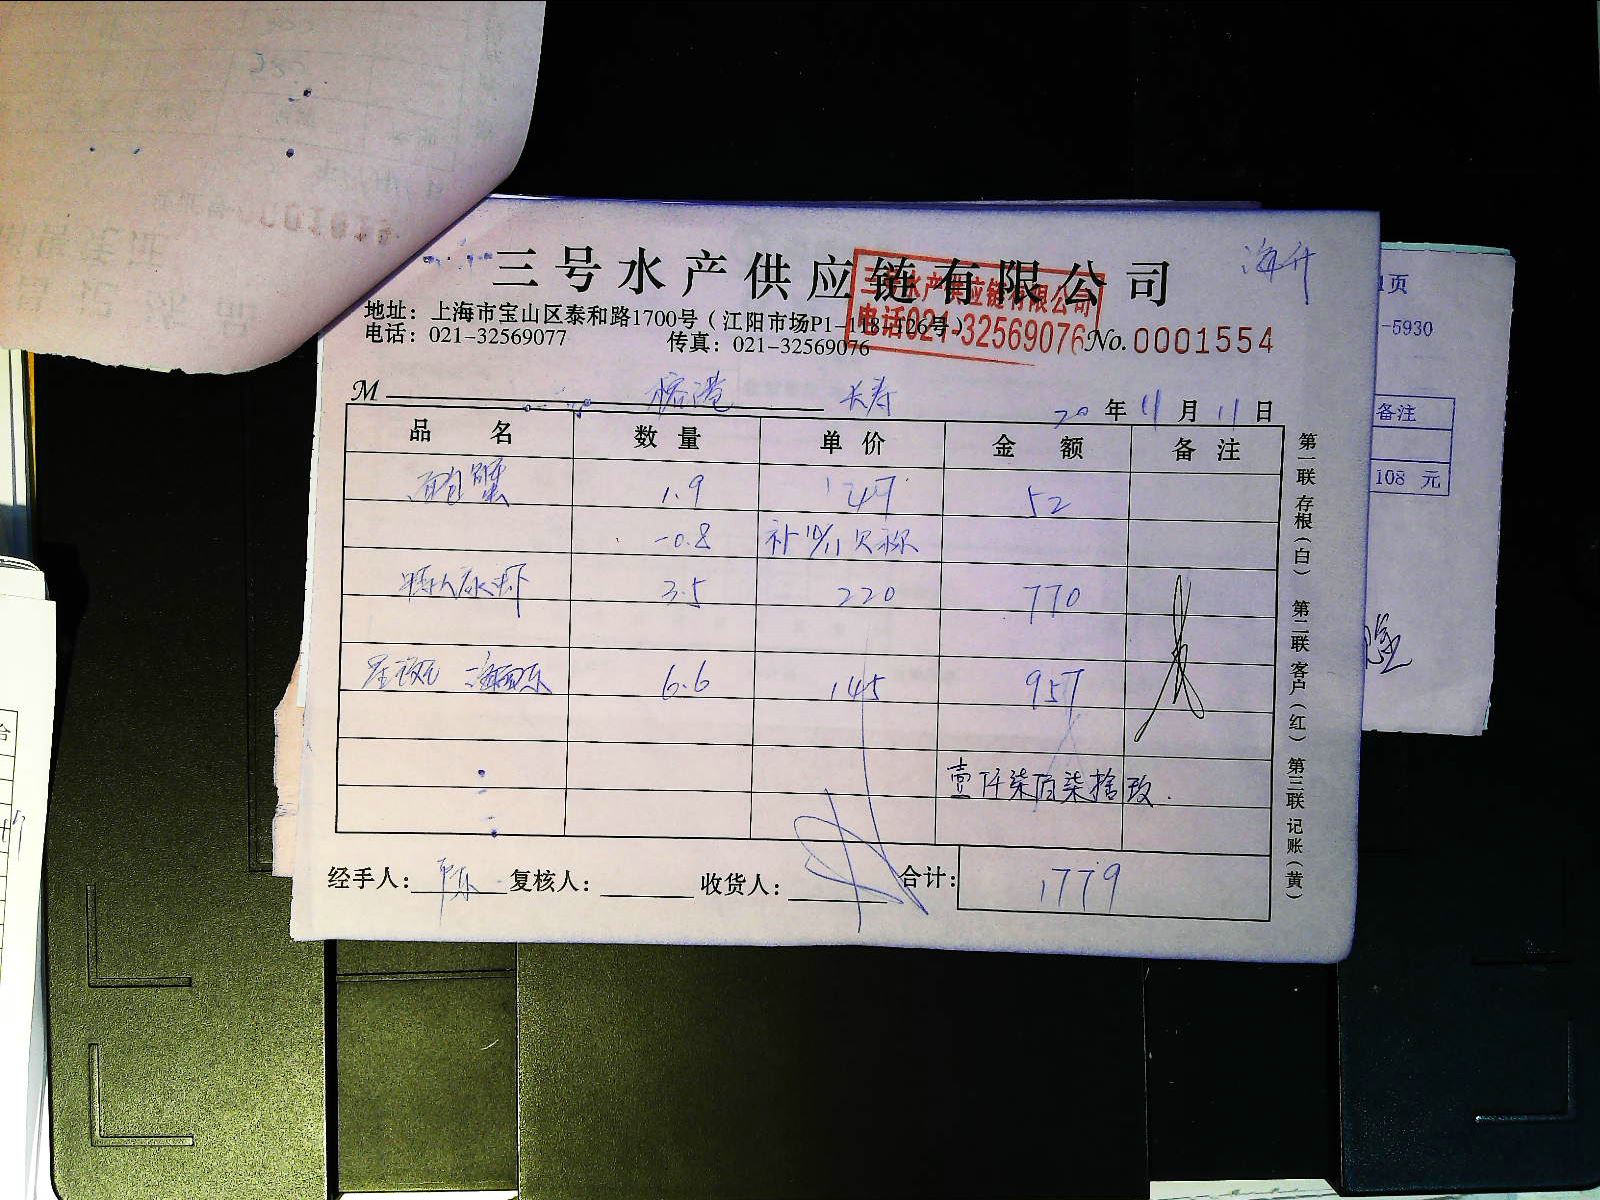 三号水产供应链有限公司
海升
地址：上海市宝山区泰和路1700号（江阳市场P1-118-126号）
电话：021-32569077 传真：021-32569076
三号水产供应链有限公司
电话021-32569076
No.0001554
M 榕港 长寿 20年11月11日
品名 数量 单价 金额 备注
1.9 47 52
-0.8 补 欠称
3.5 220 770
6.6 145 957
壹仟柒佰柒拾玖.
经手人： 复核人： 收货人： 合计： 1779
第一联 存根（白） 第二联 客户（红） 第三联 记账（黄）
1页
-5930
备注
108 元